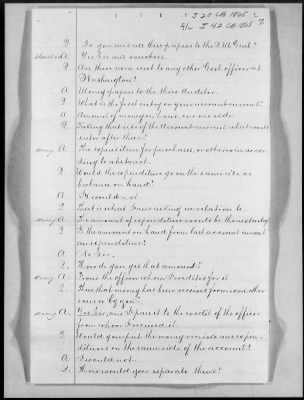 J 20 CB 1865
F/w J 42 CB 1865 7.
Q. Do you make these papers to the Q.M. Genl?
A. Yes Sir and vouchers.
Q. Are there none sent to any other Govt officer at
Washington?
A. Money papers to the third Auditor.
Q. What is the first entry on your account current?
A. Amount of money on hand, on one side.
Q. Taking that side of the Account current what would
enter after that?
wrong A. The expenditures for purchases, or otherwise accor
ding to abstract.
Q. Would the expenditures go on the same side as
balance on hand?
A. It would not.
Q. That is what I am asking in relation to.
wrong A. The amount of expenditures would be the next entry.
Q. Is the amount on hand from last account current
an expenditure?
A. No Sir.
Q. How do you get that amount?
wrong A. From the officer whom I receipted for it.
Q. Has that money has been received from some other
source by you?
wrong A. Yes Sir, and I pass it to the credit of the officer
from whom I received it.
Q. Would you put the money received and expen-
ditures on the same side of the account?
A. I would not.
Q. How would you separate them?